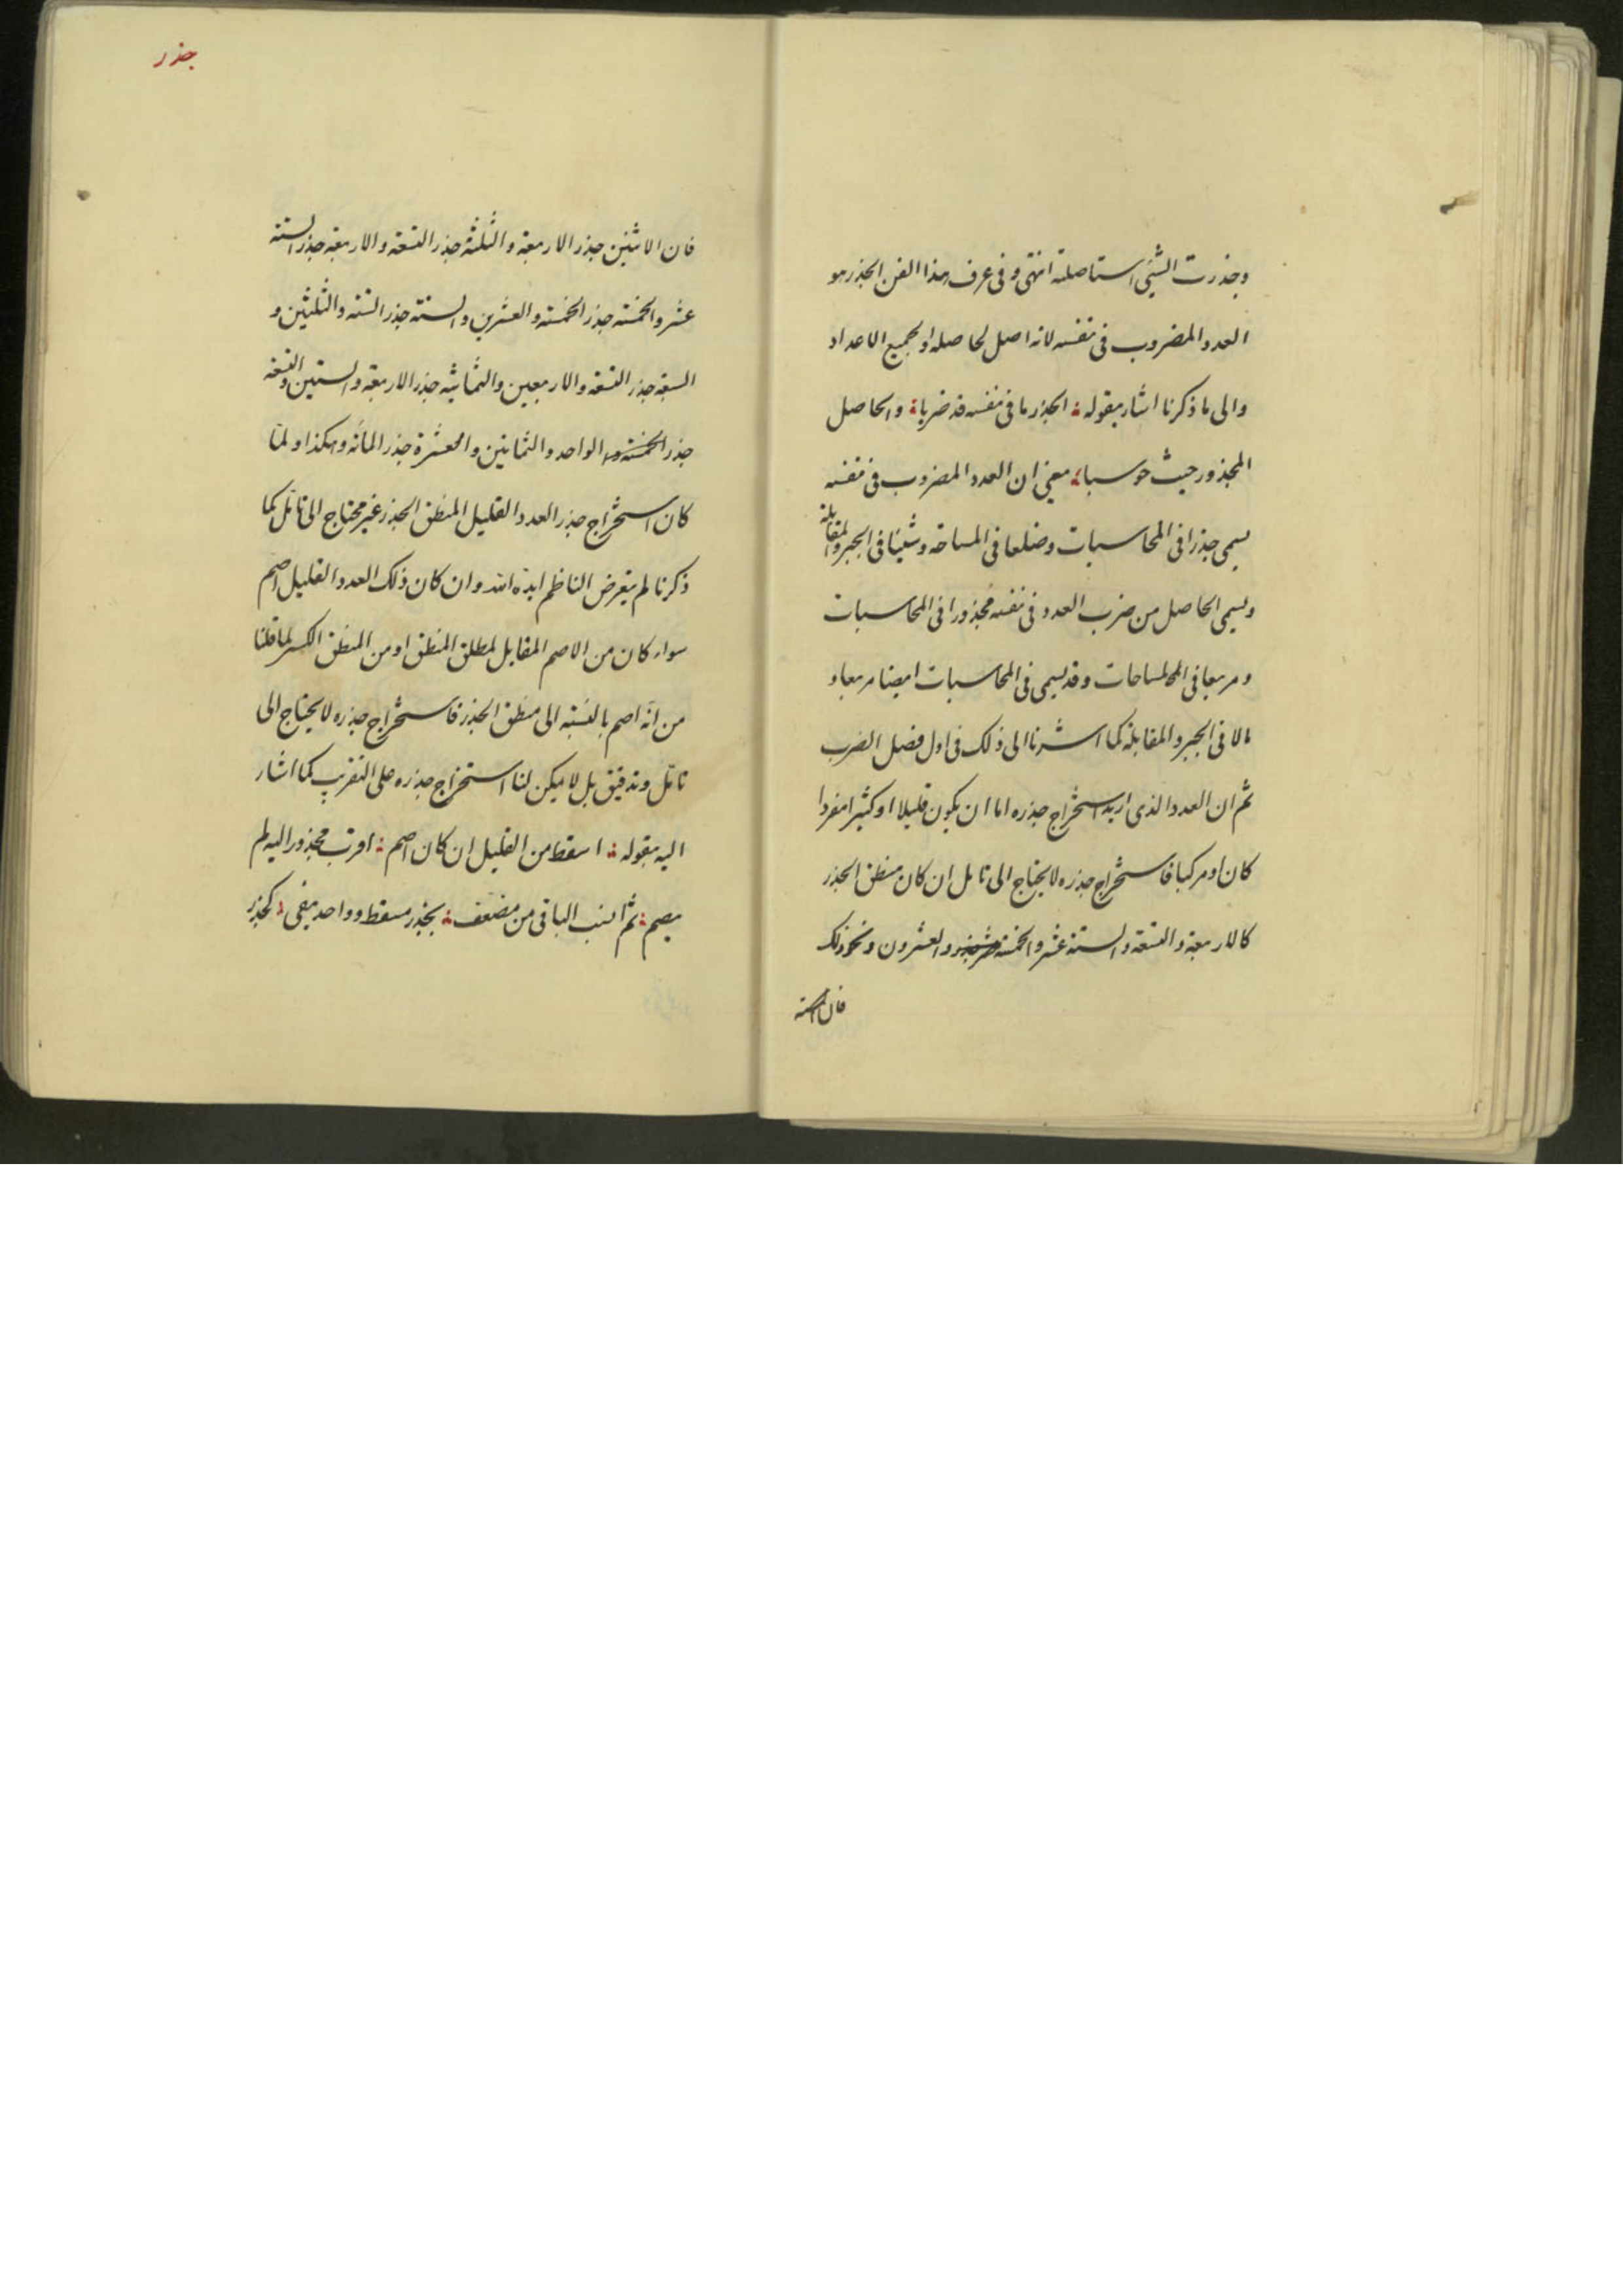 وجذرت الشیٔ استاصلته انتهی وفی عرف هذا الفن الجذر هو
العدد المضروب فی نفسه لانه اصل لحاصله او لجمیع الاعداد
والی ما ذکرنا اشار بقوله الجذر ما فی نفسه قد ضربا والحاصل
المجذور حیث حوسبا یعنی ان العدد المضروب فی نفسه
یسمی جذرا فی المحاسبات وضلعا فی المساحة وشیئا فی الجبر والمقابلة
ویسمی الحاصل من ضرب العدد فی نفسه مجذورا فی المحاسبات
ومربعا فی المساحات وقد یسمی فی المحاسبات ایضا مربعا و
مالا فی الجبر والمقابلة کما اشرنا الی ذلک فی اول فصل الضرب
ثم ان العدد الذی ارید استخراج جذره اما ان یکون قلیلا او کثیرا منفردا
کان او مرکبا فاستخراج جذره لا یحتاج الی تامل ان کان منطق الجذر
کالاربعة والتسعة والستة عشر والخمسة والعشرون ونحو ذلک
جذر
فان الاثنین جذر الاربعة والثلثة جذر التسعة والاربعة جذر الستة
عشر والخمسة جذر الخمسة والعشرین والستة جذر الستة والثلثین و
السبعة جذر التسعة والاربعین والثمانیة جذر الاربعة والستین والتسعة
جذر الواحد والثمانین والعشرة جذر المائة وهکذا ولما
کان استخراج جذر العدد القلیل المنطق الجذر غیر محتاج الی تامل کما
ذکرنا لم یتعرض الناظم ایده الله وان کان ذلک العدد القلیل اصم
سواء کان من الاصم المقابل لمطلق المنطق او من المنطق الکسر لما قلنا
من انّه اصم بالنسبة الی منطق الجذر فاستخراج جذره لا یحتاج الی
تامّل وتدقیق بل لا یمکن لنا استخراج جذره علی التقریب کما اشار
الیه بقوله اسقط من القلیل ان کان اصم اقرب مجذور الیه لم
یصم ثم انسب الباقی من مضعف بجذر مسقط وواحد یفی کجذر